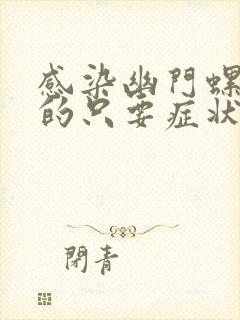 感染幽門螺
的只要症狀
閉青